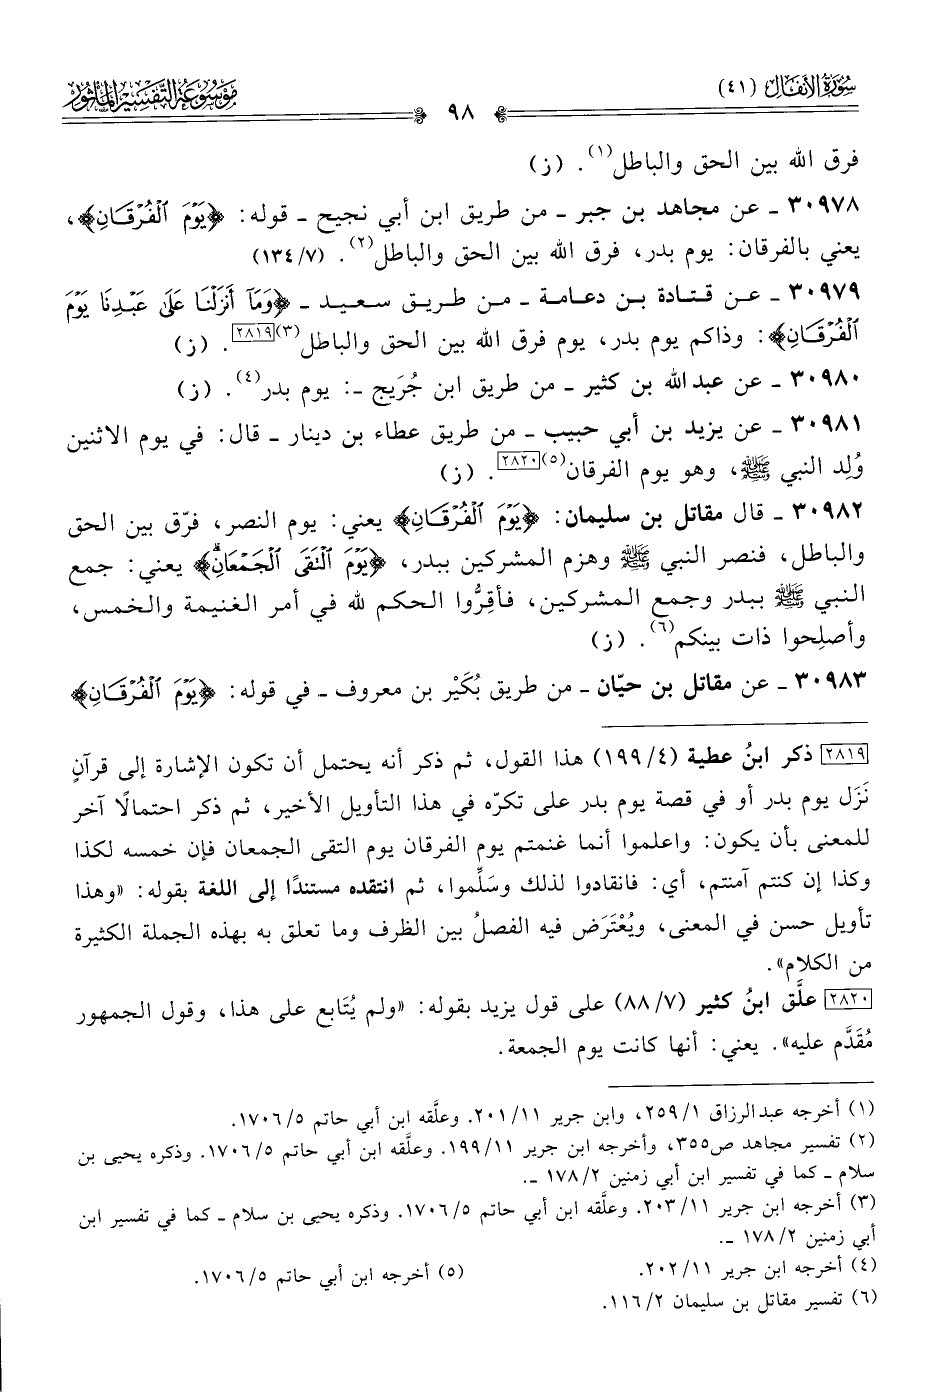 سُورَةُ الأَنفَال (٤١)
٩٨
مَوْسُوعَة التَّفْسِيرِ المَأْثُور
فرق الله بين الحق والباطل(١). (ز)
٣٠٩٧٨ ـ عن مجاهد بن جبر ـ من طريق ابن أبي نجيح ـ قوله: ﴿يَوْمَ الْفُرْقَانِ﴾،
يعني بالفرقان: يوم بدر، فرق الله بين الحق والباطل(٢). (٧/ ١٣٤)
٣٠٩٧٩ ـ عن قتادة بن دعامة ـ من طريق سعيد ـ ﴿وَمَآ أَنزَلْنَا عَلَىٰ عَبْدِنَا يَوْمَ
الْفُرْقَانِ﴾: وذاكم يوم بدر، يوم فرق الله بين الحق والباطل(٣)[٢٨١٩]. (ز)
٣٠٩٨٠ ـ عن عبد الله بن كثير ـ من طريق ابن جُرَيج ـ: يوم بدر(٤). (ز)
٣٠٩٨١ ـ عن يزيد بن أبي حبيب ـ من طريق عطاء بن دينار ـ قال: في يوم الاثنين
وُلِد النبي ﷺ، وهو يوم الفرقان(٥)[٢٨٢٠]. (ز)
٣٠٩٨٢ ـ قال مقاتل بن سليمان: ﴿يَوْمَ الْفُرْقَانِ﴾ يعني: يوم النصر، فرّق بين الحق
والباطل، فنصر النبي ﷺ وهزم المشركين ببدر، ﴿يَوْمَ الْتَقَى الْجَمْعَانِۗ﴾ يعني: جمع
النبي ﷺ ببدر وجمع المشركين، فأقِرُّوا الحكم لله في أمر الغنيمة والخمس،
وأصلِحوا ذات بينكم(٦). (ز)
٣٠٩٨٣ ـ عن مقاتل بن حيّان ـ من طريق بُكَيْر بن معروف ـ في قوله: ﴿يَوْمَ الْفُرْقَانِ﴾
[٢٨١٩] ذكر ابنُ عطية (٤/ ١٩٩) هذا القول، ثم ذكر أنه يحتمل أن تكون الإشارة إلى قرآنٍ
نَزَل يوم بدر أو في قصة يوم بدر على تكرّه في هذا التأويل الأخير، ثم ذكر احتمالًا آخر
للمعنى بأن يكون: واعلموا أنما غنمتم يوم الفرقان يوم التقى الجمعان فإن خمسه لكذا
وكذا إن كنتم آمنتم، أي: فانقادوا لذلك وسَلِّموا، ثم انتقده مستندًا إلى اللغة بقوله: «وهذا
تأويل حسن في المعنى، ويُعْتَرَض فيه الفصلُ بين الظرف وما تعلق به بهذه الجملة الكثيرة
من الكلام».
[٢٨٢٠] علَّق ابنُ كثير (٧/ ٨٨) على قول يزيد بقوله: «ولم يُتَابع على هذا، وقول الجمهور
مُقَدَّم عليه». يعني: أنها كانت يوم الجمعة.
(١) أخرجه عبد الرزاق ١/ ٢٥٩، وابن جرير ١١/ ٢٠١. وعلَّقه ابن أبي حاتم ٥/ ١٧٠٦.
(٢) تفسير مجاهد ص٣٥٥، وأخرجه ابن جرير ١١/ ١٩٩. وعلَّقه ابن أبي حاتم ٥/ ١٧٠٦. وذكره يحيى بن
سلام ـ كما في تفسير ابن أبي زمنين ٢/ ١٧٨ ـ.
(٣) أخرجه ابن جرير ١١/ ٢٠٣. وعلَّقه ابن أبي حاتم ٥/ ١٧٠٦. وذكره يحيى بن سلام ـ كما في تفسير ابن
أبي زمنين ٢/ ١٧٨ ـ.
(٤) أخرجه ابن جرير ١١/ ٢٠٢. (٥) أخرجه ابن أبي حاتم ٥/ ١٧٠٦.
(٦) تفسير مقاتل بن سليمان ٢/ ١١٦.